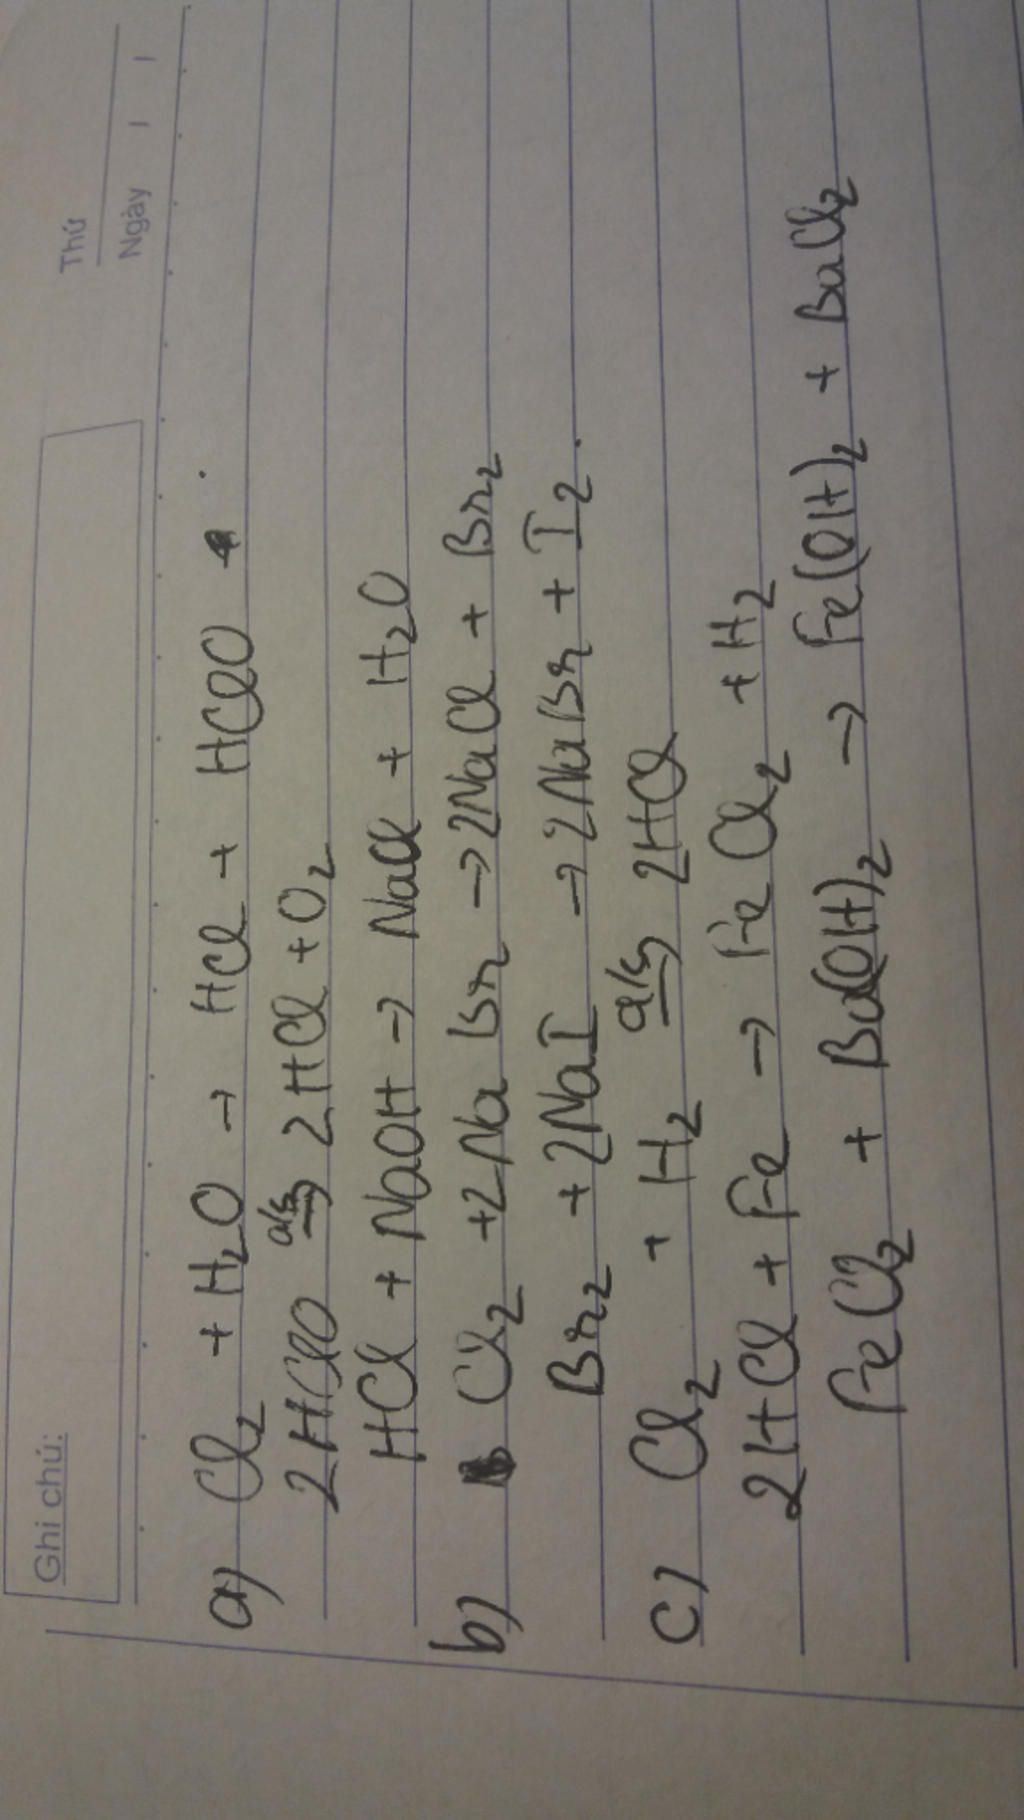 Ghi chú:
Thứ
Ngày / /
a) Cl₂ + H₂O → HCl + HClO
2HClO a/s→ 2HCl + O₂
HCl + NaOH → NaCl + H₂O
b) Cl₂ + 2NaBr → 2NaCl + Br₂
Br₂ + 2NaI → 2NaBr + I₂.
c) Cl₂ + H₂ a/s→ 2HCl
2HCl + Fe → FeCl₂ + H₂
FeCl₂ + Ba(OH)₂ → Fe(OH)₂ + BaCl₂